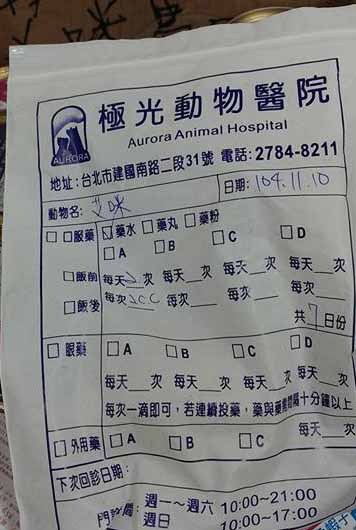 極光動物醫院
AURORA
Aurora Animal Hospital
地址:台北市建國南路二段31號 電話:2784-8211
日期: 104.11.10
動物名: 艾咪
□口服藥 ☑藥水 □藥丸 □藥粉
□A □B □C □D
□飯前 每天2次 每天__次 每天__次 每天__次
□飯後 每次2CC 每次__ 每次__ 每次__
共7日份
□眼藥 □A □B □C □D
每天__次 每天__次 每天__次 每天__次
每次一滴即可,若連續投藥,藥與藥需間隔十分鐘以上
□外用藥 □A □B □C 每天__次
下次回診日期:
門診時間: 週一~週六 10:00~21:00
週日 10:00~17:00